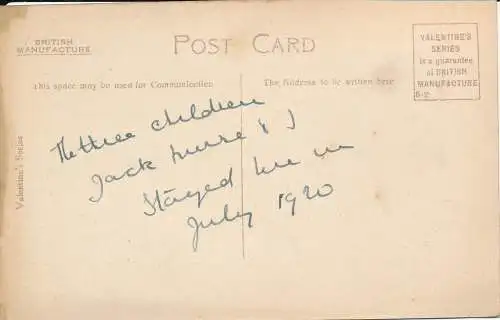 BRITISH
MANUFACTURE
POST CARD
VALENTINE'S
SERIES
is a guarantee
of BRITISH
MANUFACTURE
S-2.
This space may be used for Communication
The Address to be written here
Valentine's Series
The three children
Jack nurse & I
Stayed here in
July 1920